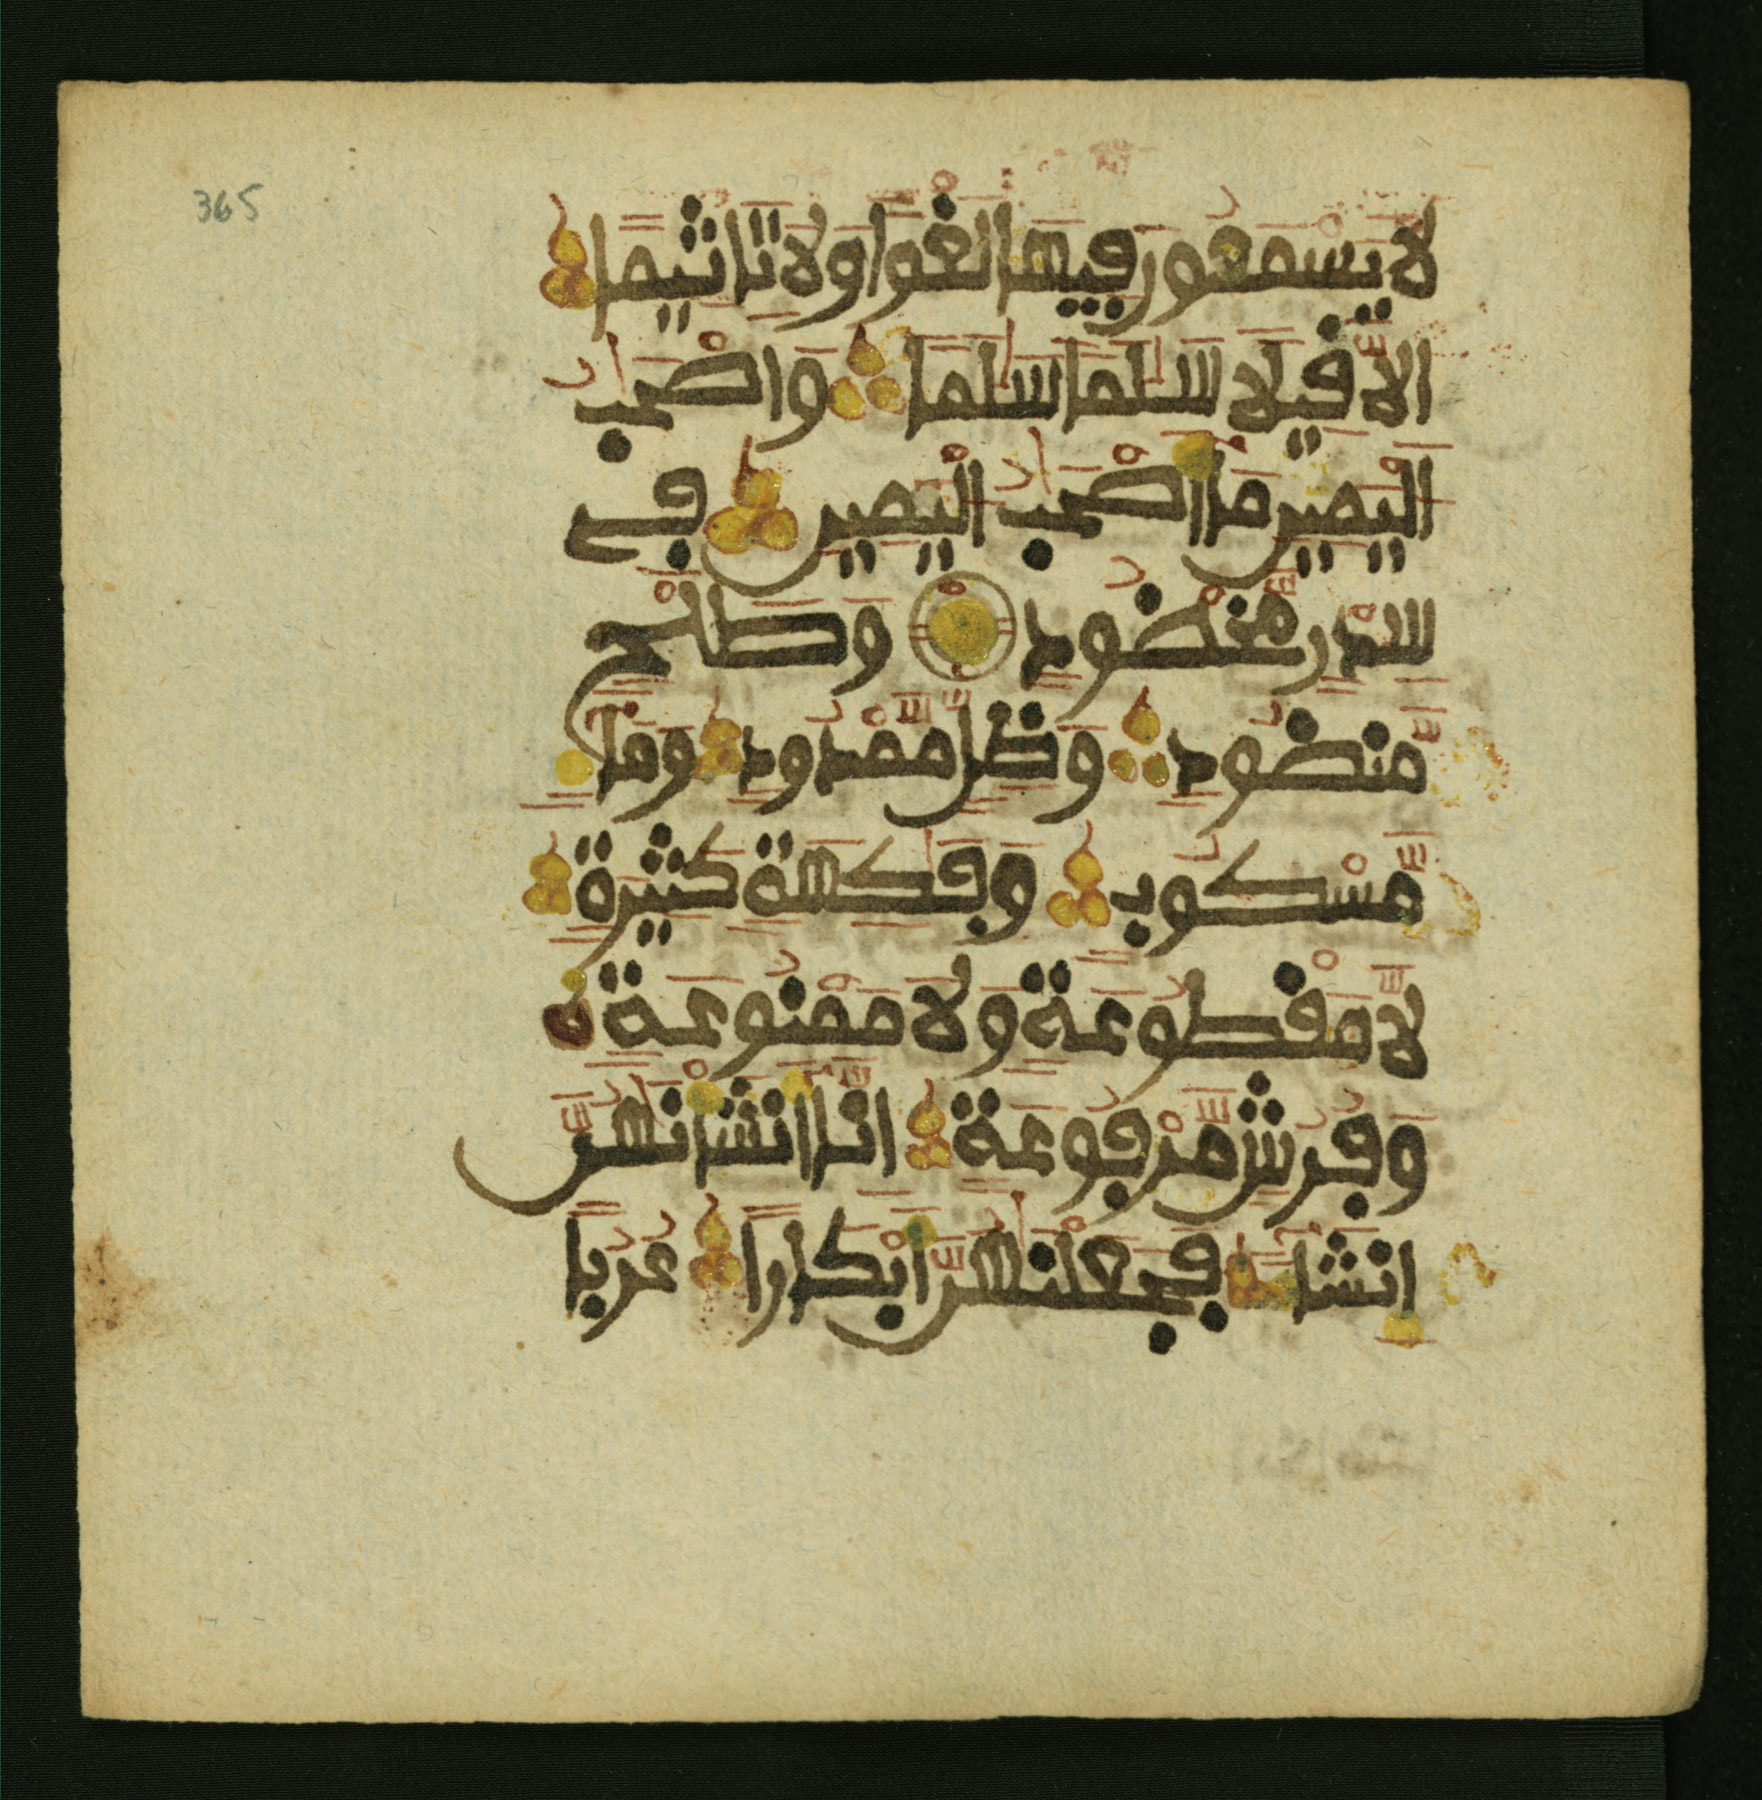 365
لا يسمعون فيها لغوا ولا تاثيما
الا قيلا سلما سلما واصحب
اليمين ما اصحب اليمين في
سدر مخضود وطلح
منضود وظل ممدود وما
مسكوب وفكهة كثيرة
لا مقطوعة ولا ممنوعة
وفرش مرفوعة انا انشانهن
انشا فجعلنهن ابكارا عربا